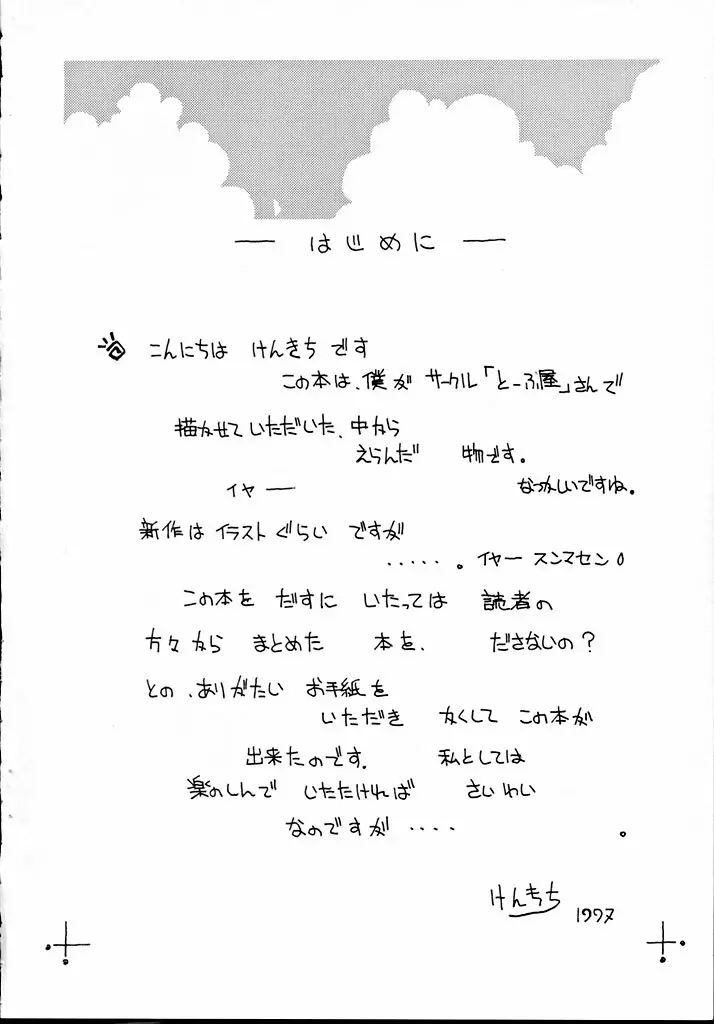 ― はじめに ―
こんにちは けんきち です
この本は、僕が サークル「とーふ屋」さんで
描かせていただいた、中から
えらんだ 物です。
イヤー なつかしいですね。
新作は イラストぐらい ですが
・・・・・。イヤー スンマセン
この本を だすに いたっては 読者の
方々から まとめた 本を、 ださないの?
との、ありがたい お手紙を
いただき かくして この本が
出来たのです. 私としては
楽のしんで いたたければ さいわい
なのですが ・・・・ 。
けんきち 1997